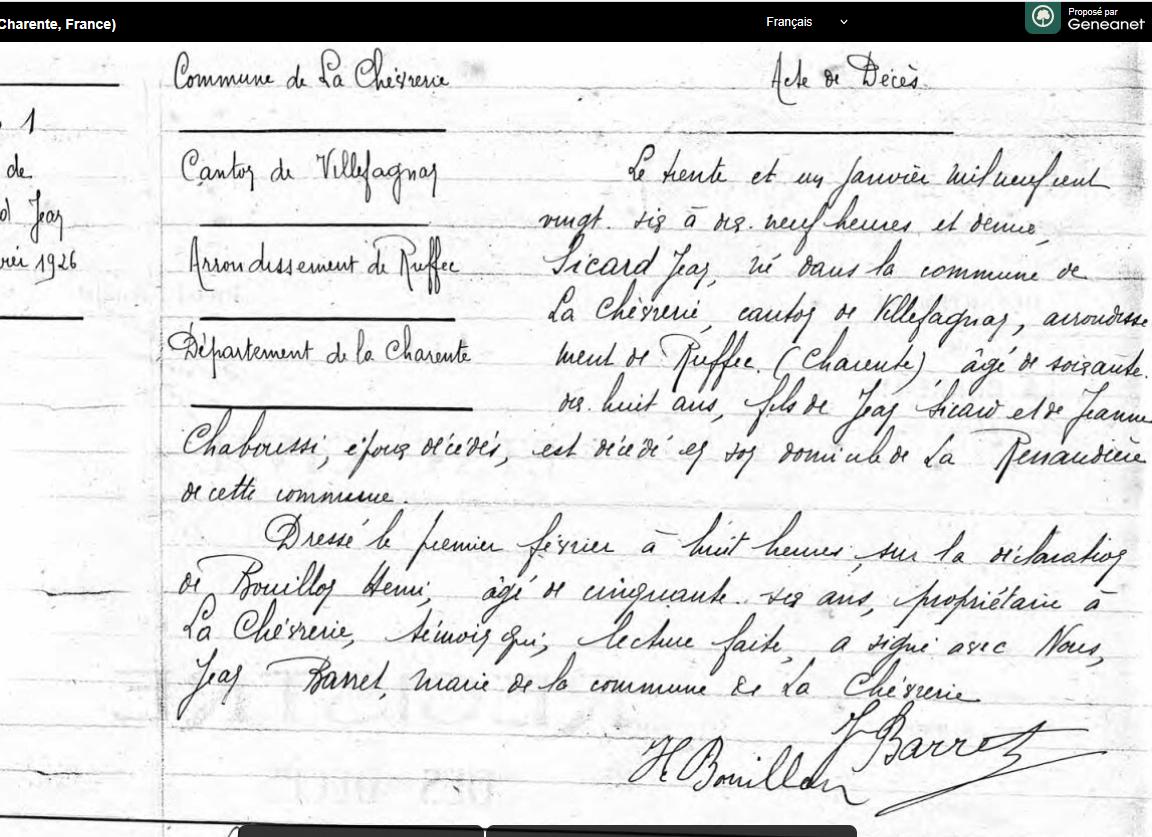 Charente, France)
Français
Proposé par
Geneanet
1
de
Jean
1926
Commune de La Chèvrerie
Acte de Décès.
Canton de Villefagnan
Arrondissement de Ruffec
Département de la Charente
Le trente et un Janvier mil neuf cent
vingt-six à dix-neuf heures et demie,
Sicard Jean, né dans la commune de
La Chèvrerie, canton de Villefagnan, arrondisse
ment de Ruffec (Charente) âgé de soixante-
dix-huit ans, fils de Jean Sicard et de Jeanne
Chaboussi, époux décédés, est décédé en son domicile de La Renaudière
de cette commune.
Dressé le premier février à huit heures, sur la déclaration
de Bouillon Henri, âgé de cinquante-six ans, propriétaire à
La Chèvrerie, témoin qui, lecture faite, a signé avec Nous,
Jean Barret, maire de la commune de La Chèvrerie
J Barret
H Bouillon